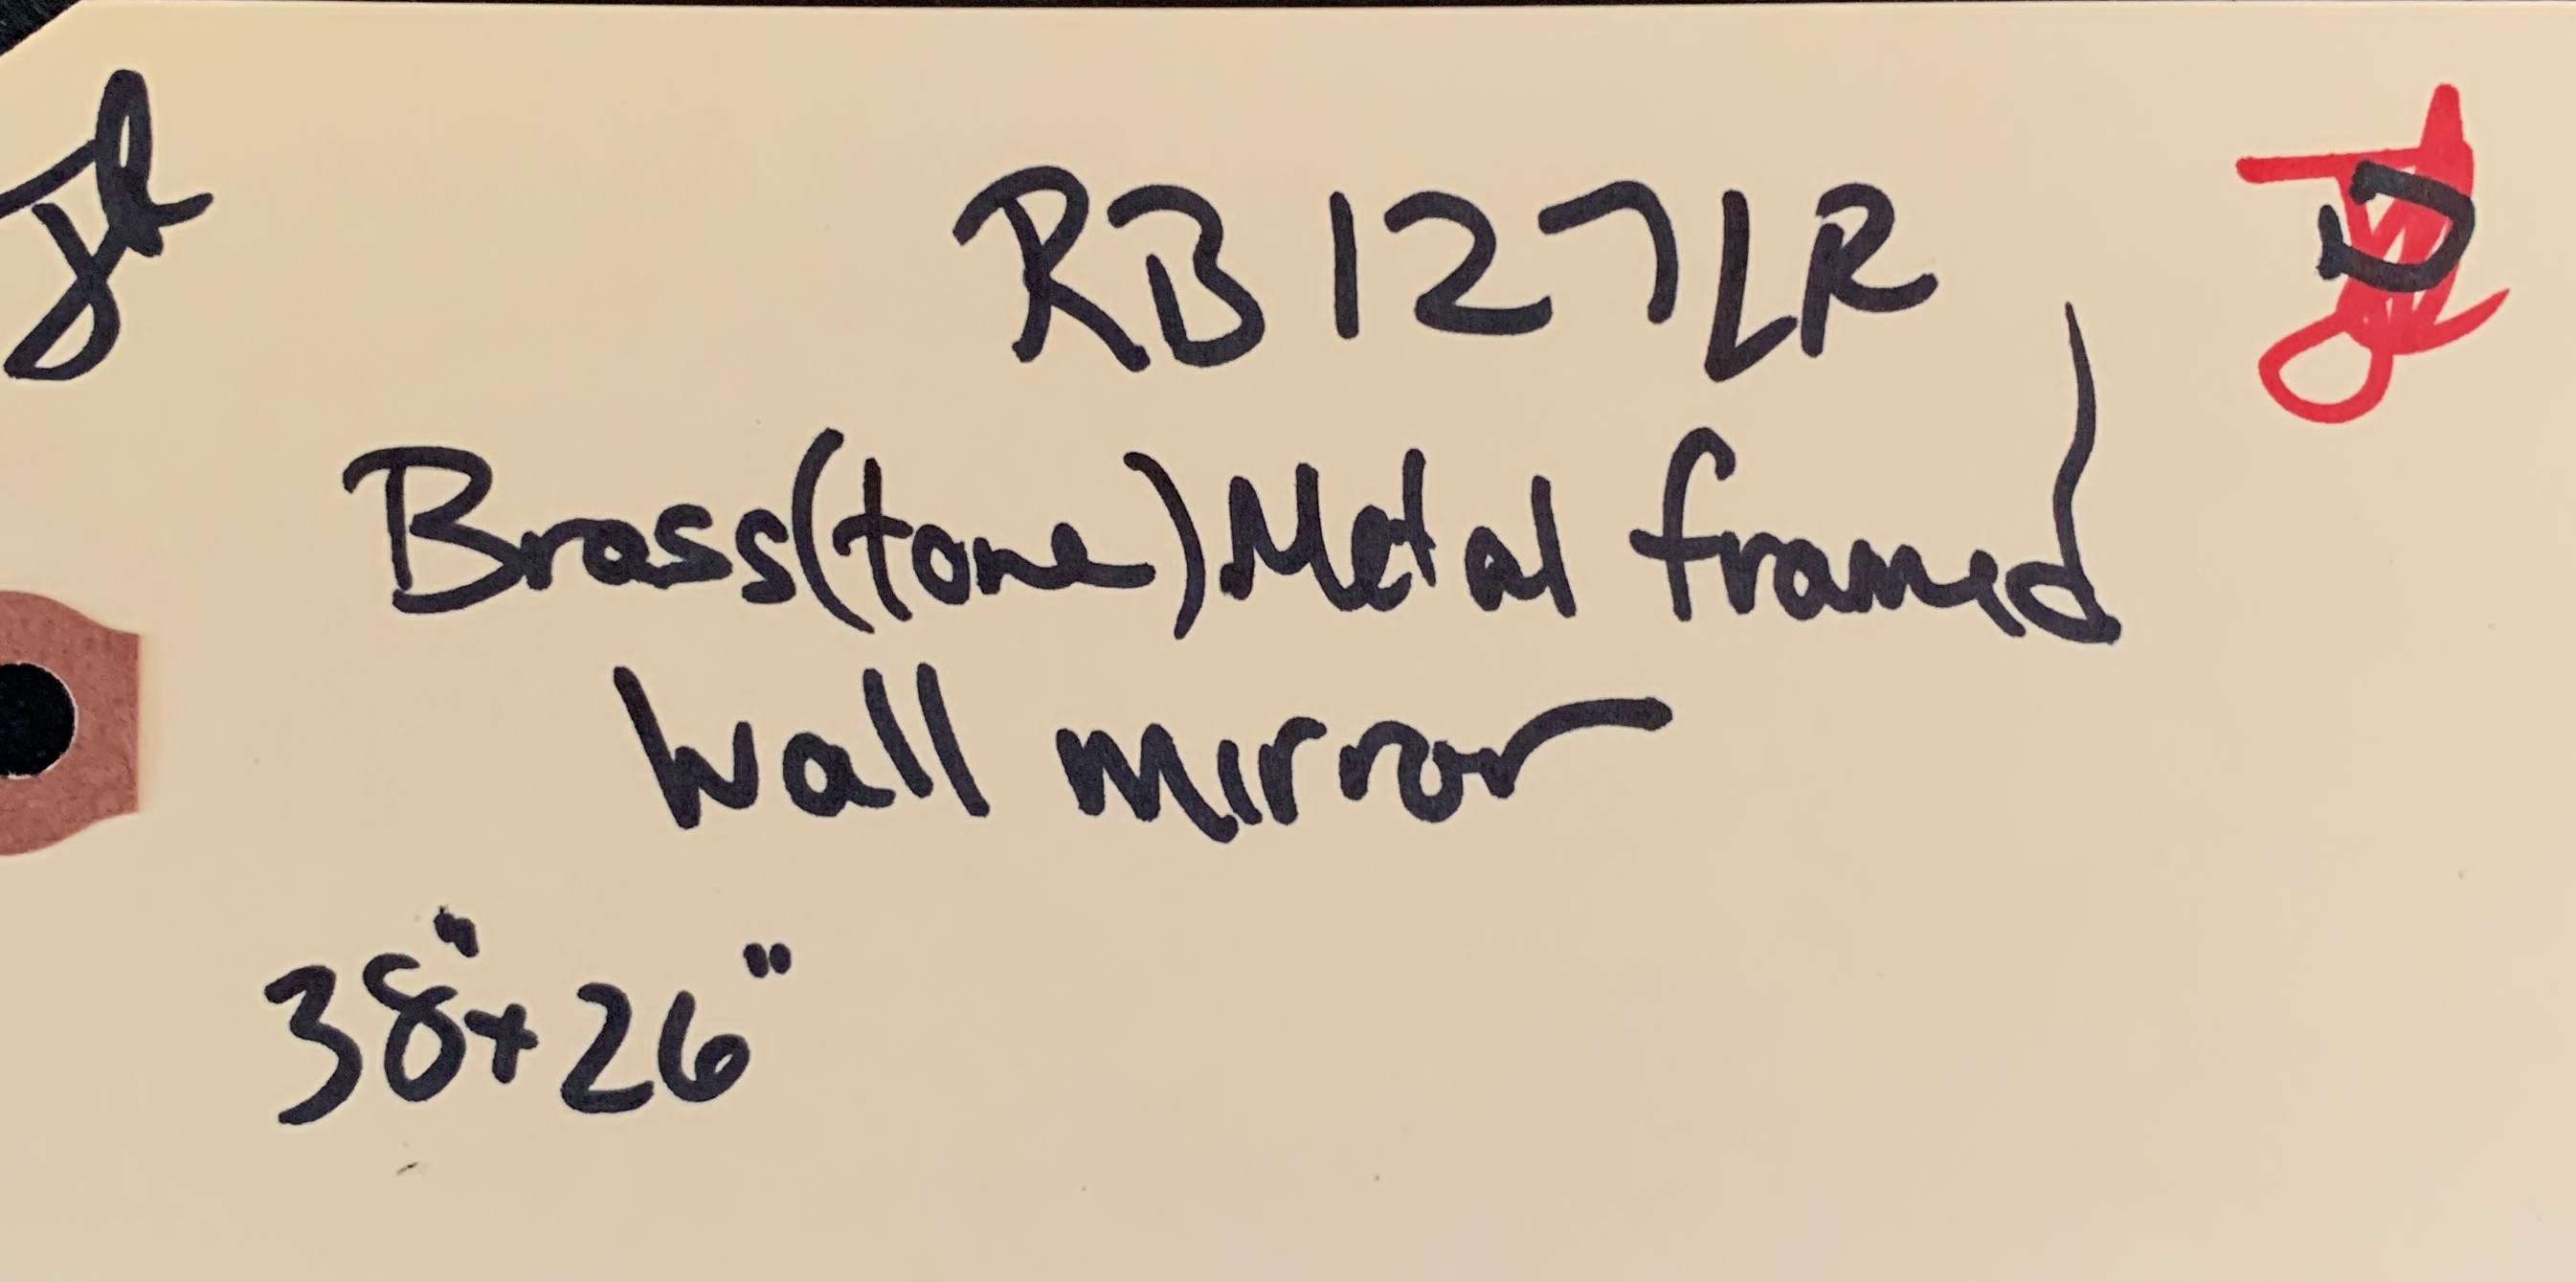 RB127LR
Brass(tone) Metal framed
Wall mirror
38"x 26"